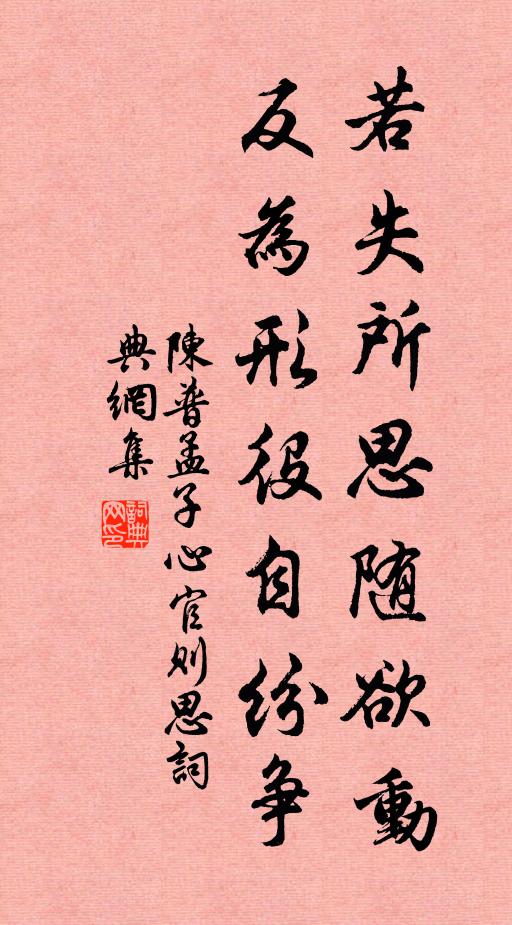 若失所思随欲動
反為形役自纷争
陳普孟子心官则思詞
典網集
詞典网印